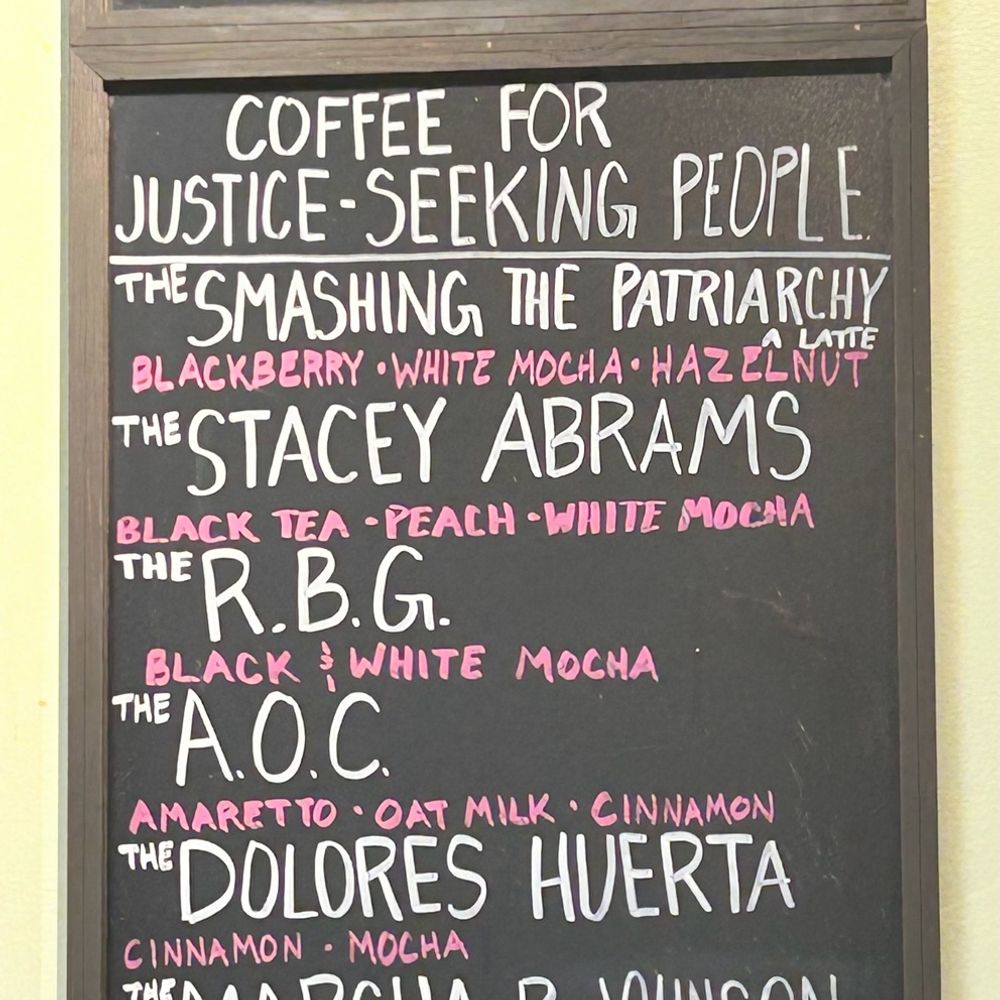 COFFEE FOR
JUSTICE-SEEKING PEOPLE
THE SMASHING THE PATRIARCHY
^ LATTE
BLACKBERRY · WHITE MOCHA · HAZELNUT
THE STACEY ABRAMS
BLACK TEA · PEACH · WHITE MOCHA
THE R.B.G.
BLACK & WHITE MOCHA
THE A.O.C.
AMARETTO · OAT MILK · CINNAMON
THE DOLORES HUERTA
CINNAMON · MOCHA
THE MARSHA P. JOHNSON